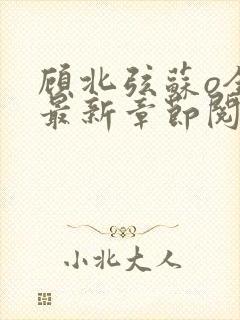 顾北弦蘇o全
最新章節閱
小北大人